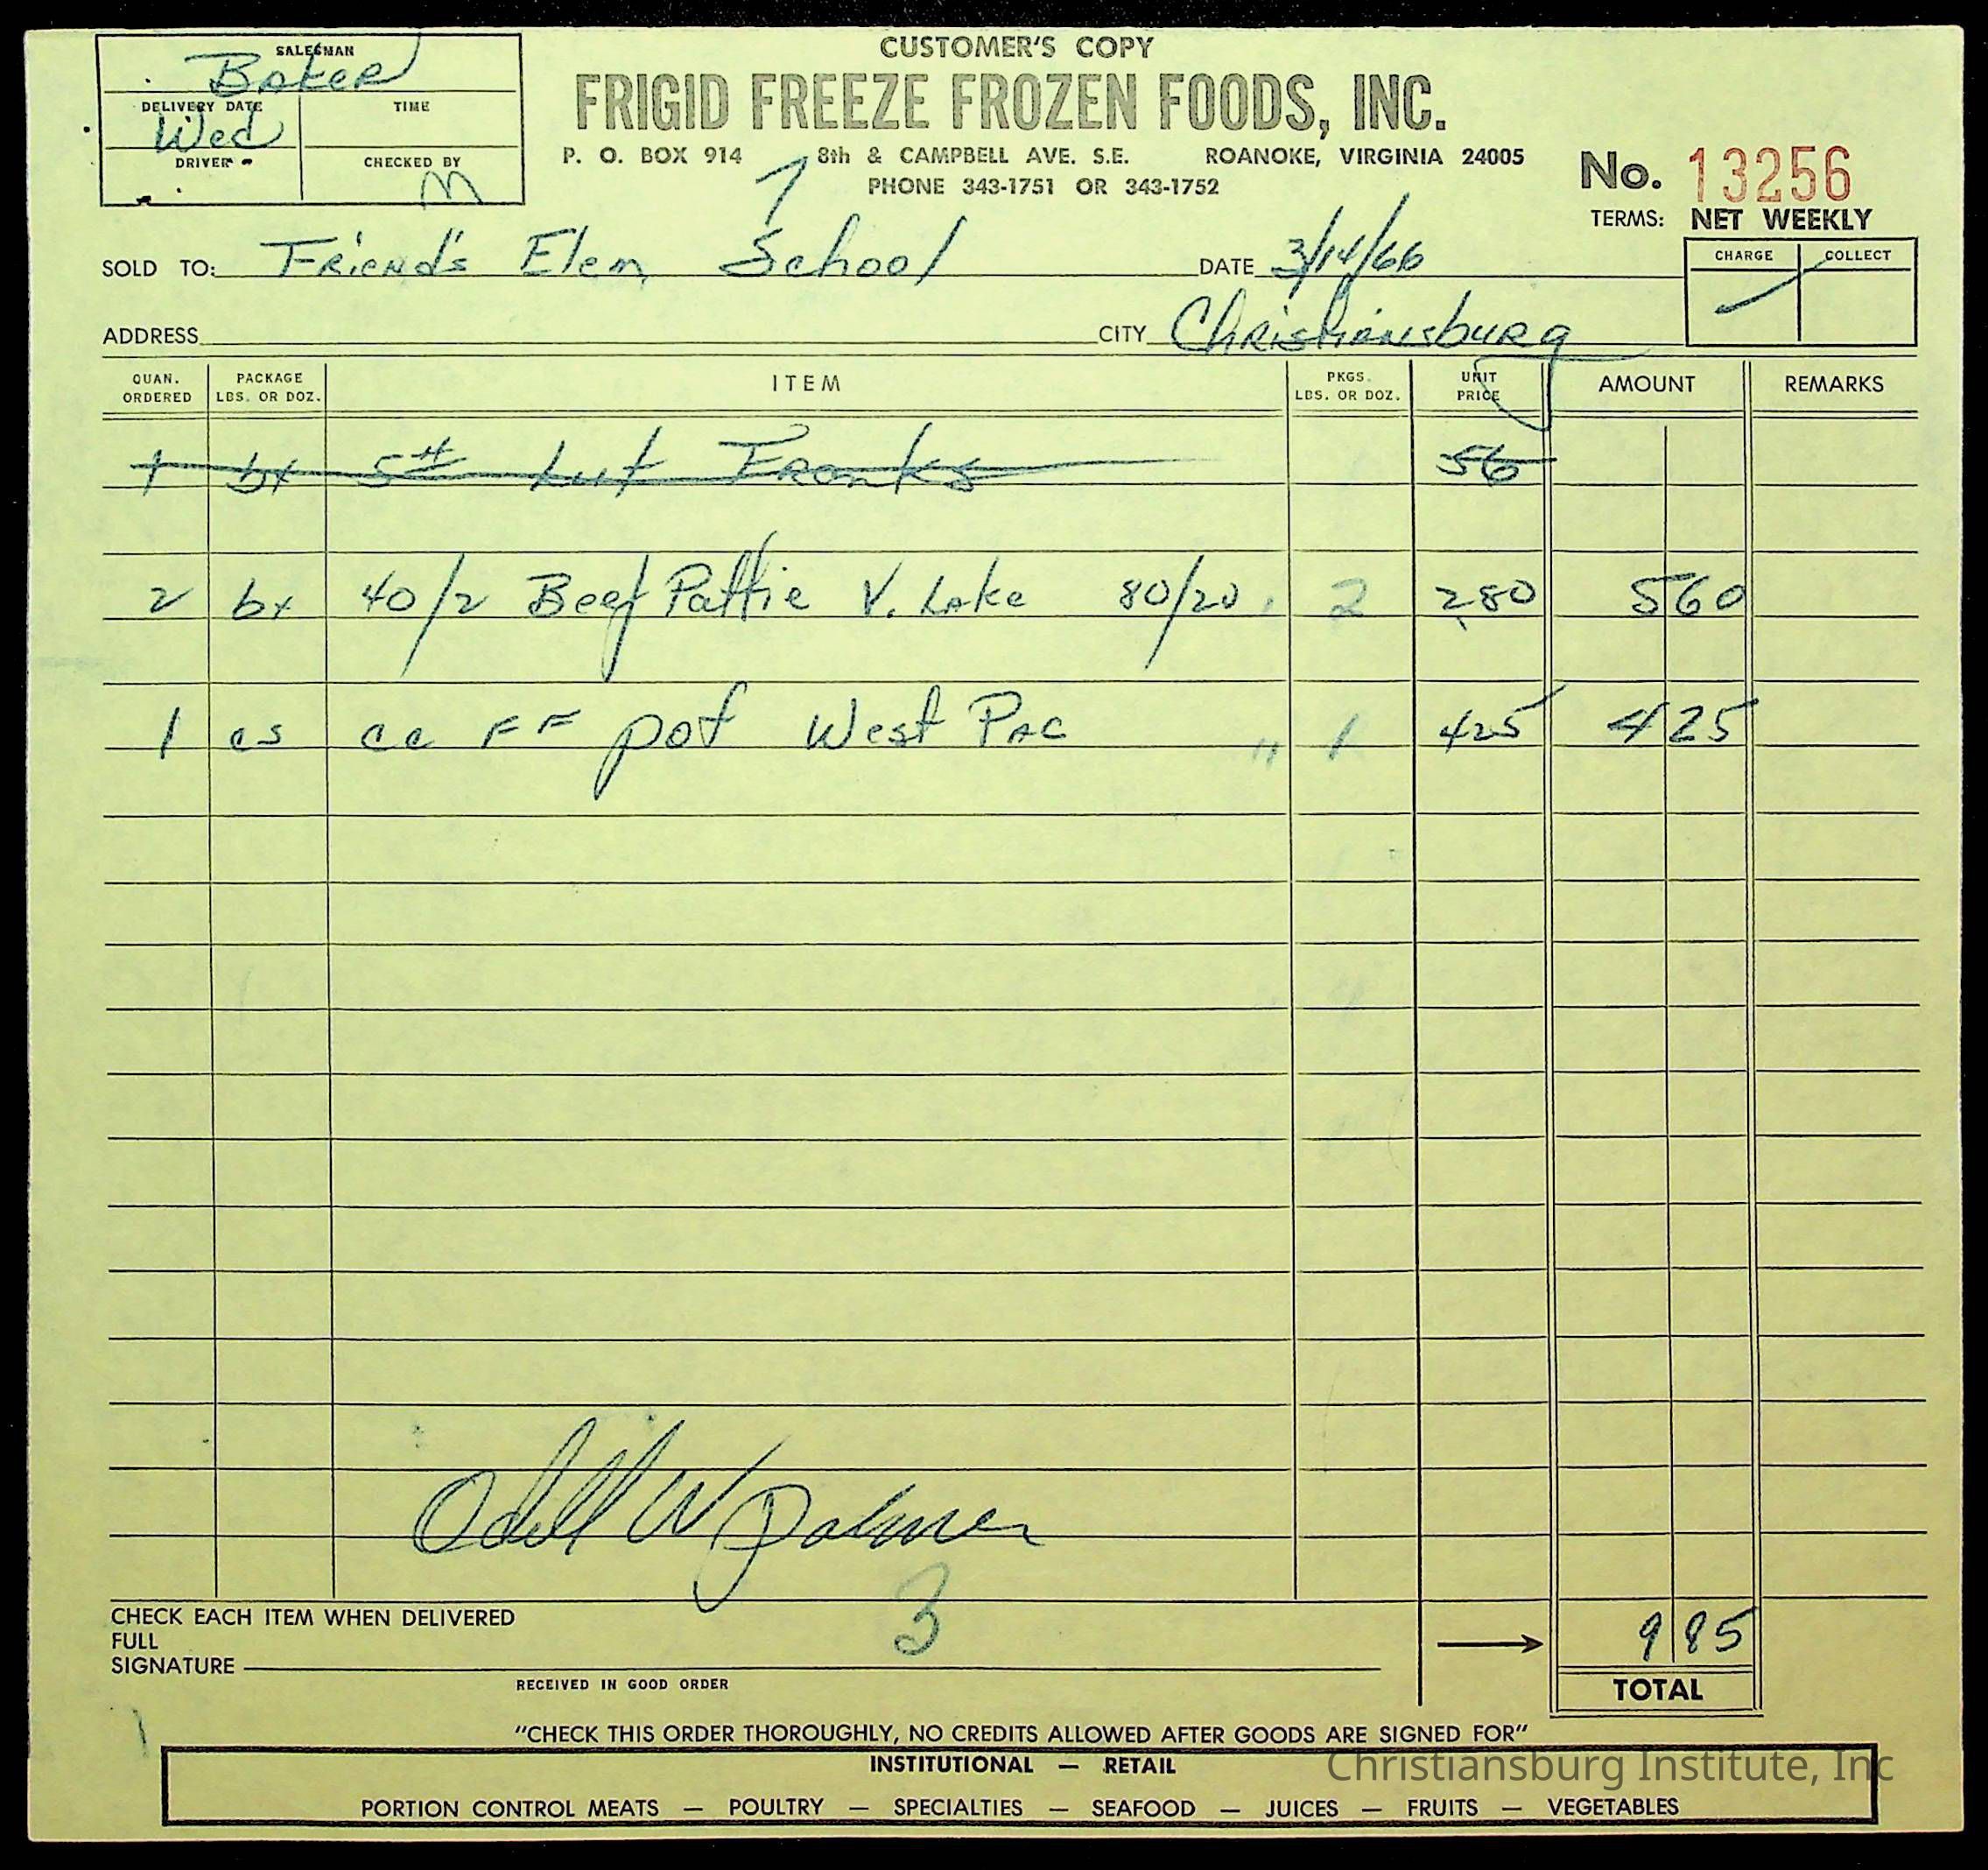 CUSTOMER'S COPY
FRIGID FREEZE FROZEN FOODS, INC.
P. O. BOX 914 8th & CAMPBELL AVE. S.E. ROANOKE, VIRGINIA 24005
PHONE 343-1751 OR 343-1752
SALESMAN
Baker
DELIVERY DATE TIME
Wed
DRIVER CHECKED BY
M
7
No. 13256
TERMS: NET WEEKLY
CHARGE COLLECT
SOLD TO: Friends Elem School DATE 3/14/66
ADDRESS CITY Christiansburg
QUAN. ORDERED PACKAGE LBS. OR DOZ. ITEM PKGS. LBS. OR DOZ. UNIT PRICE AMOUNT REMARKS
1 bx 5# Franks 56
2 bx 40/2 Beef Pattie V. Lake 80/20 2 280 560
1 cs cc FF pot West Pac " 1 425 425
Odell W Palmer
3
CHECK EACH ITEM WHEN DELIVERED
FULL
SIGNATURE
RECEIVED IN GOOD ORDER
985
TOTAL
"CHECK THIS ORDER THOROUGHLY, NO CREDITS ALLOWED AFTER GOODS ARE SIGNED FOR"
INSTITUTIONAL — RETAIL
Christiansburg Institute, Inc
PORTION CONTROL MEATS — POULTRY — SPECIALTIES — SEAFOOD — JUICES — FRUITS — VEGETABLES